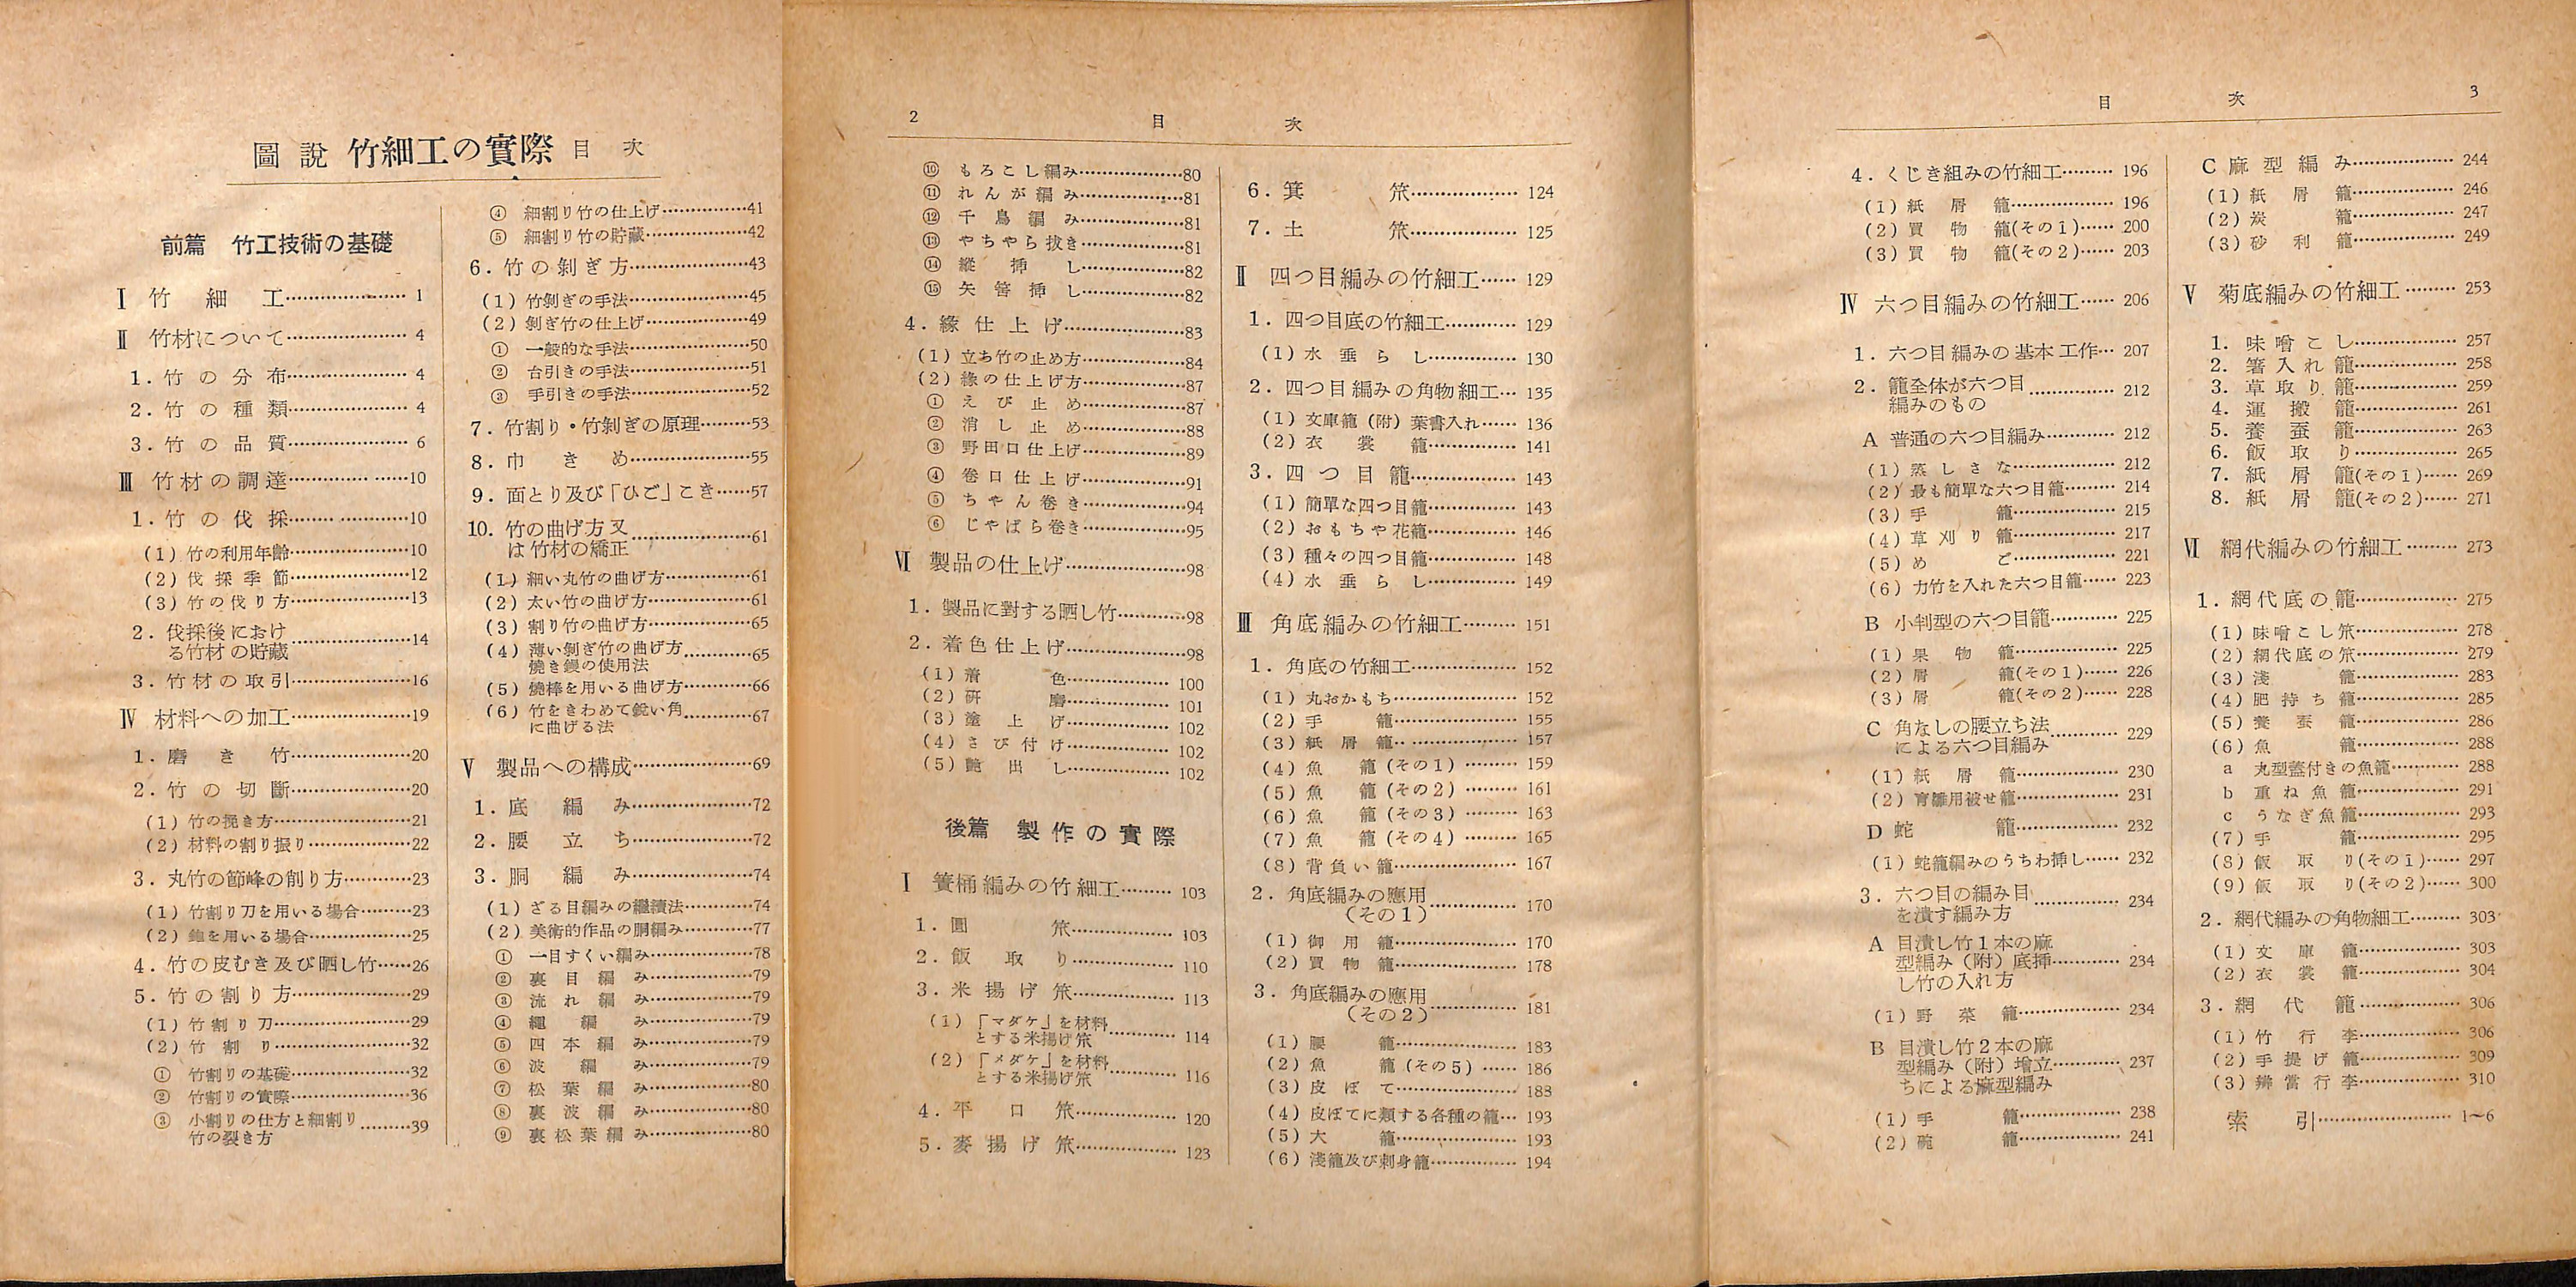 圖說 竹細工の實際 目次
前篇 竹工技術の基礎
Ⅰ 竹細工…………………1
Ⅱ 竹材について…………………4
1. 竹の分布…………………4
2. 竹の種類…………………4
3. 竹の品質…………………6
Ⅲ 竹材の調達…………………10
1. 竹の伐採…………………10
(1) 竹の利用年齡…………………10
(2) 伐採季節…………………12
(3) 竹の伐り方…………………13
2. 伐採後におけ
る竹材の貯蔵…………………14
3. 竹材の取引…………………16
Ⅳ 材料への加工…………………19
1. 磨き竹…………………20
2. 竹の切斷…………………20
(1) 竹の挽き方…………………21
(2) 材料の割り振り…………………22
3. 丸竹の節峰の削り方…………23
(1) 竹割り刀を用いる場合………23
(2) 鉋を用いる場合………………25
4. 竹の皮むき及び晒し竹……26
5. 竹の割り方…………………29
(1) 竹割り刀…………………29
(2) 竹割り…………………32
① 竹割りの基礎…………………32
② 竹割りの實際…………………36
③ 小割りの仕方と細割り
竹の裂き方………39
④ 細割り竹の仕上げ……………41
⑤ 細割り竹の貯藏………………42
6. 竹の剝ぎ方…………………43
(1) 竹剝ぎの手法…………………45
(2) 剝ぎ竹の仕上げ………………49
① 一般的な手法…………………50
② 台引きの手法…………………51
③ 手引きの手法…………………52
7. 竹割り・竹剝ぎの原理………53
8. 巾きめ…………………55
9. 面とり及び「ひご」こき……57
10. 竹の曲げ方又
は竹材の矯正…………………61
(1) 細い丸竹の曲げ方……………61
(2) 太い竹の曲げ方………………61
(3) 割り竹の曲げ方………………65
(4) 薄い剝ぎ竹の曲げ方
燒き鏝の使用法…………65
(5) 燒棒を用いる曲げ方…………66
(6) 竹をきわめて鋭い角
に曲げる法…………67
Ⅴ 製品への構成…………………69
1. 底編み…………………72
2. 腰立ち…………………72
3. 胴編み…………………74
(1) ざる目編みの繼續法…………74
(2) 美術的作品の胴編み…………77
① 一目すくい編み………………78
② 裏目編み…………………79
③ 流れ編み…………………79
④ 繩編み…………………79
⑤ 四本編み…………………79
⑥ 波編み…………………79
⑦ 松葉編み…………………80
⑧ 裏波編み…………………80
⑨ 裏松葉編み…………………80
2 目次
⑩ もろこし編み…………………80
⑪ れんが編み…………………81
⑫ 千鳥編み…………………81
⑬ やちやら抜き…………………81
⑭ 縱挿し…………………82
⑮ 矢筈挿し…………………82
4. 緣仕上げ…………………83
(1) 立ち竹の止め方………………84
(2) 緣の仕上げ方…………………87
① えび止め…………………87
② 消し止め…………………88
③ 野田口仕上げ…………………89
④ 卷口仕上げ…………………91
⑤ ちやん卷き…………………94
⑥ じゃばら卷き…………………95
Ⅵ 製品の仕上げ…………………98
1. 製品に對する晒し竹…………98
2. 着色仕上げ…………………98
(1) 着色………………100
(2) 硏磨………………101
(3) 塗上げ………………102
(4) さび付け………………102
(5) 艶出し………………102
後篇 製作の實際
Ⅰ 簀桶編みの竹細工………103
1. 圓笊………………103
2. 飯取り………………110
3. 米揚げ笊………………113
(1) 「マダケ」を材料
とする米揚げ笊…………114
(2) 「メダケ」を材料
とする米揚げ笊…………116
4. 平口笊………………120
5. 麥揚げ笊………………123
6. 箕笊………………124
7. 土笊………………125
Ⅱ 四つ目編みの竹細工……129
1. 四つ目底の竹細工…………129
(1) 水垂らし……………130
2. 四つ目編みの角物細工…135
(1) 文庫籠(附)葉書入れ……136
(2) 衣裳籠……………141
3. 四つ目籠………………143
(1) 簡單な四つ目籠……………143
(2) おもちや花籠……………146
(3) 種々の四つ目籠……………148
(4) 水垂らし……………149
Ⅲ 角底編みの竹細工………151
1. 角底の竹細工………………152
(1) 丸おかもち…………………152
(2) 手籠…………………155
(3) 紙屑籠…………………157
(4) 魚籠(その1)………159
(5) 魚籠(その2)………161
(6) 魚籠(その3)………163
(7) 魚籠(その4)………165
(8) 背負い籠…………………167
2. 角底編みの應用
(その1)……………170
(1) 御用籠…………………170
(2) 買物籠…………………178
3. 角底編みの應用
(その2)……………181
(1) 腰籠…………………183
(2) 魚籠(その5)……186
(3) 皮ぼて…………………188
(4) 皮ぼてに類する各種の籠…193
(5) 大籠…………………193
(6) 淺籠及び刺身籠……………194
目次 3
4. くじき組みの竹細工………196
(1) 紙屑籠………………196
(2) 買物籠(その1)……200
(3) 買物籠(その2)……203
Ⅳ 六つ目編みの竹細工……206
1. 六つ目編みの基本工作…207
2. 籠全体が六つ目
編みのもの……………212
A 普通の六つ目編み…………212
(1) 蒸しざな………………212
(2) 最も簡單な六つ目籠………214
(3) 手籠………………215
(4) 草刈り籠………………217
(5) めご………………221
(6) 力竹を入れた六つ目籠……223
B 小判型の六つ目籠…………225
(1) 果物籠………………225
(2) 屑籠(その1)……226
(3) 屑籠(その2)……228
C 角なしの腰立ち法
による六つ目編み…………229
(1) 紙屑籠………………230
(2) 育雛用被せ籠………………231
D 蛇籠………………232
(1) 蛇籠編みのうちわ挿し……232
3. 六つ目の編み目
を潰す編み方……………234
A 目潰し竹1本の麻
型編み(附)底挿
し竹の入れ方…………234
(1) 野菜籠………………234
B 目潰し竹2本の麻
型編み(附)增立
ちによる麻型編み…………237
(1) 手籠………………238
(2) 碗籠………………241
C 麻型編み………………244
(1) 紙屑籠………………246
(2) 炭籠………………247
(3) 砂利籠………………249
Ⅴ 菊底編みの竹細工………253
1. 味噌こし………………257
2. 箸入れ籠………………258
3. 草取り籠………………259
4. 運搬籠………………261
5. 養蚕籠………………263
6. 飯取り………………265
7. 紙屑籠(その1)……269
8. 紙屑籠(その2)……271
Ⅵ 網代編みの竹細工………273
1. 網代底の籠………………275
(1) 味噌こし笊………………278
(2) 網代底の笊………………279
(3) 淺籠………………283
(4) 肥持ち籠………………285
(5) 養蚕籠………………286
(6) 魚籠………………288
a 丸型蓋付きの魚籠…………288
b 重ね魚籠………………291
c うなぎ魚籠………………293
(7) 手籠………………295
(8) 飯取り(その1)……297
(9) 飯取り(その2)……300
2. 網代編みの角物細工………303
(1) 文庫籠………………303
(2) 衣裳籠………………304
3. 網代籠………………306
(1) 竹行李………………306
(2) 手提げ籠………………309
(3) 辨當行李………………310
索引……………………1〜6